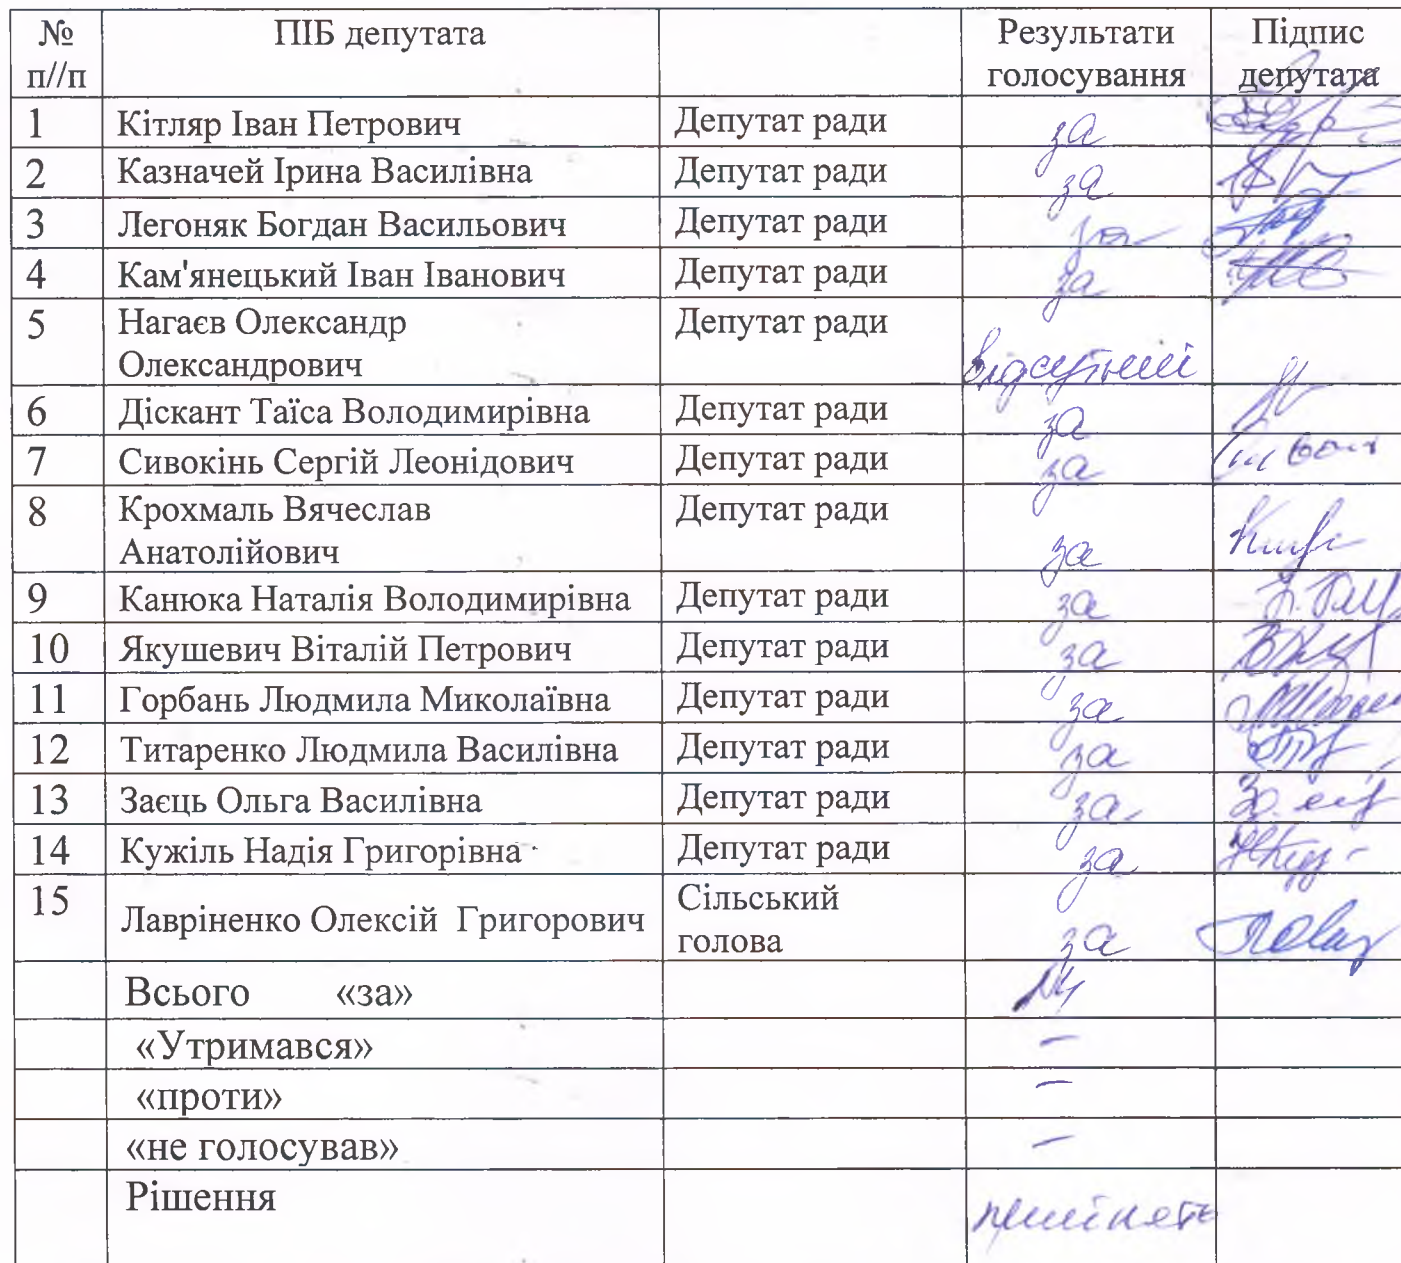 № п//п ПІБ депутата Результати голосування Підпис депутата
1 Кітляр Іван Петрович Депутат ради за
2 Казначей Ірина Василівна Депутат ради за
3 Легоняк Богдан Васильович Депутат ради за
4 Кам'янецький Іван Іванович Депутат ради за
5 Нагаєв Олександр Депутат ради
Олександрович відсутній
6 Діскант Таїса Володимирівна Депутат ради за
7 Сивокінь Сергій Леонідович Депутат ради за
8 Крохмаль Вячеслав Депутат ради
Анатолійович за
9 Канюка Наталія Володимирівна Депутат ради за
10 Якушевич Віталій Петрович Депутат ради за
11 Горбань Людмила Миколаївна Депутат ради за
12 Титаренко Людмила Василівна Депутат ради за
13 Заєць Ольга Василівна Депутат ради за
14 Кужіль Надія Григорівна Депутат ради за
15 Лавріненко Олексій Григорович Сільський голова за
Всього «за» 14
«Утримався» –
«проти» –
«не голосував» –
Рішення